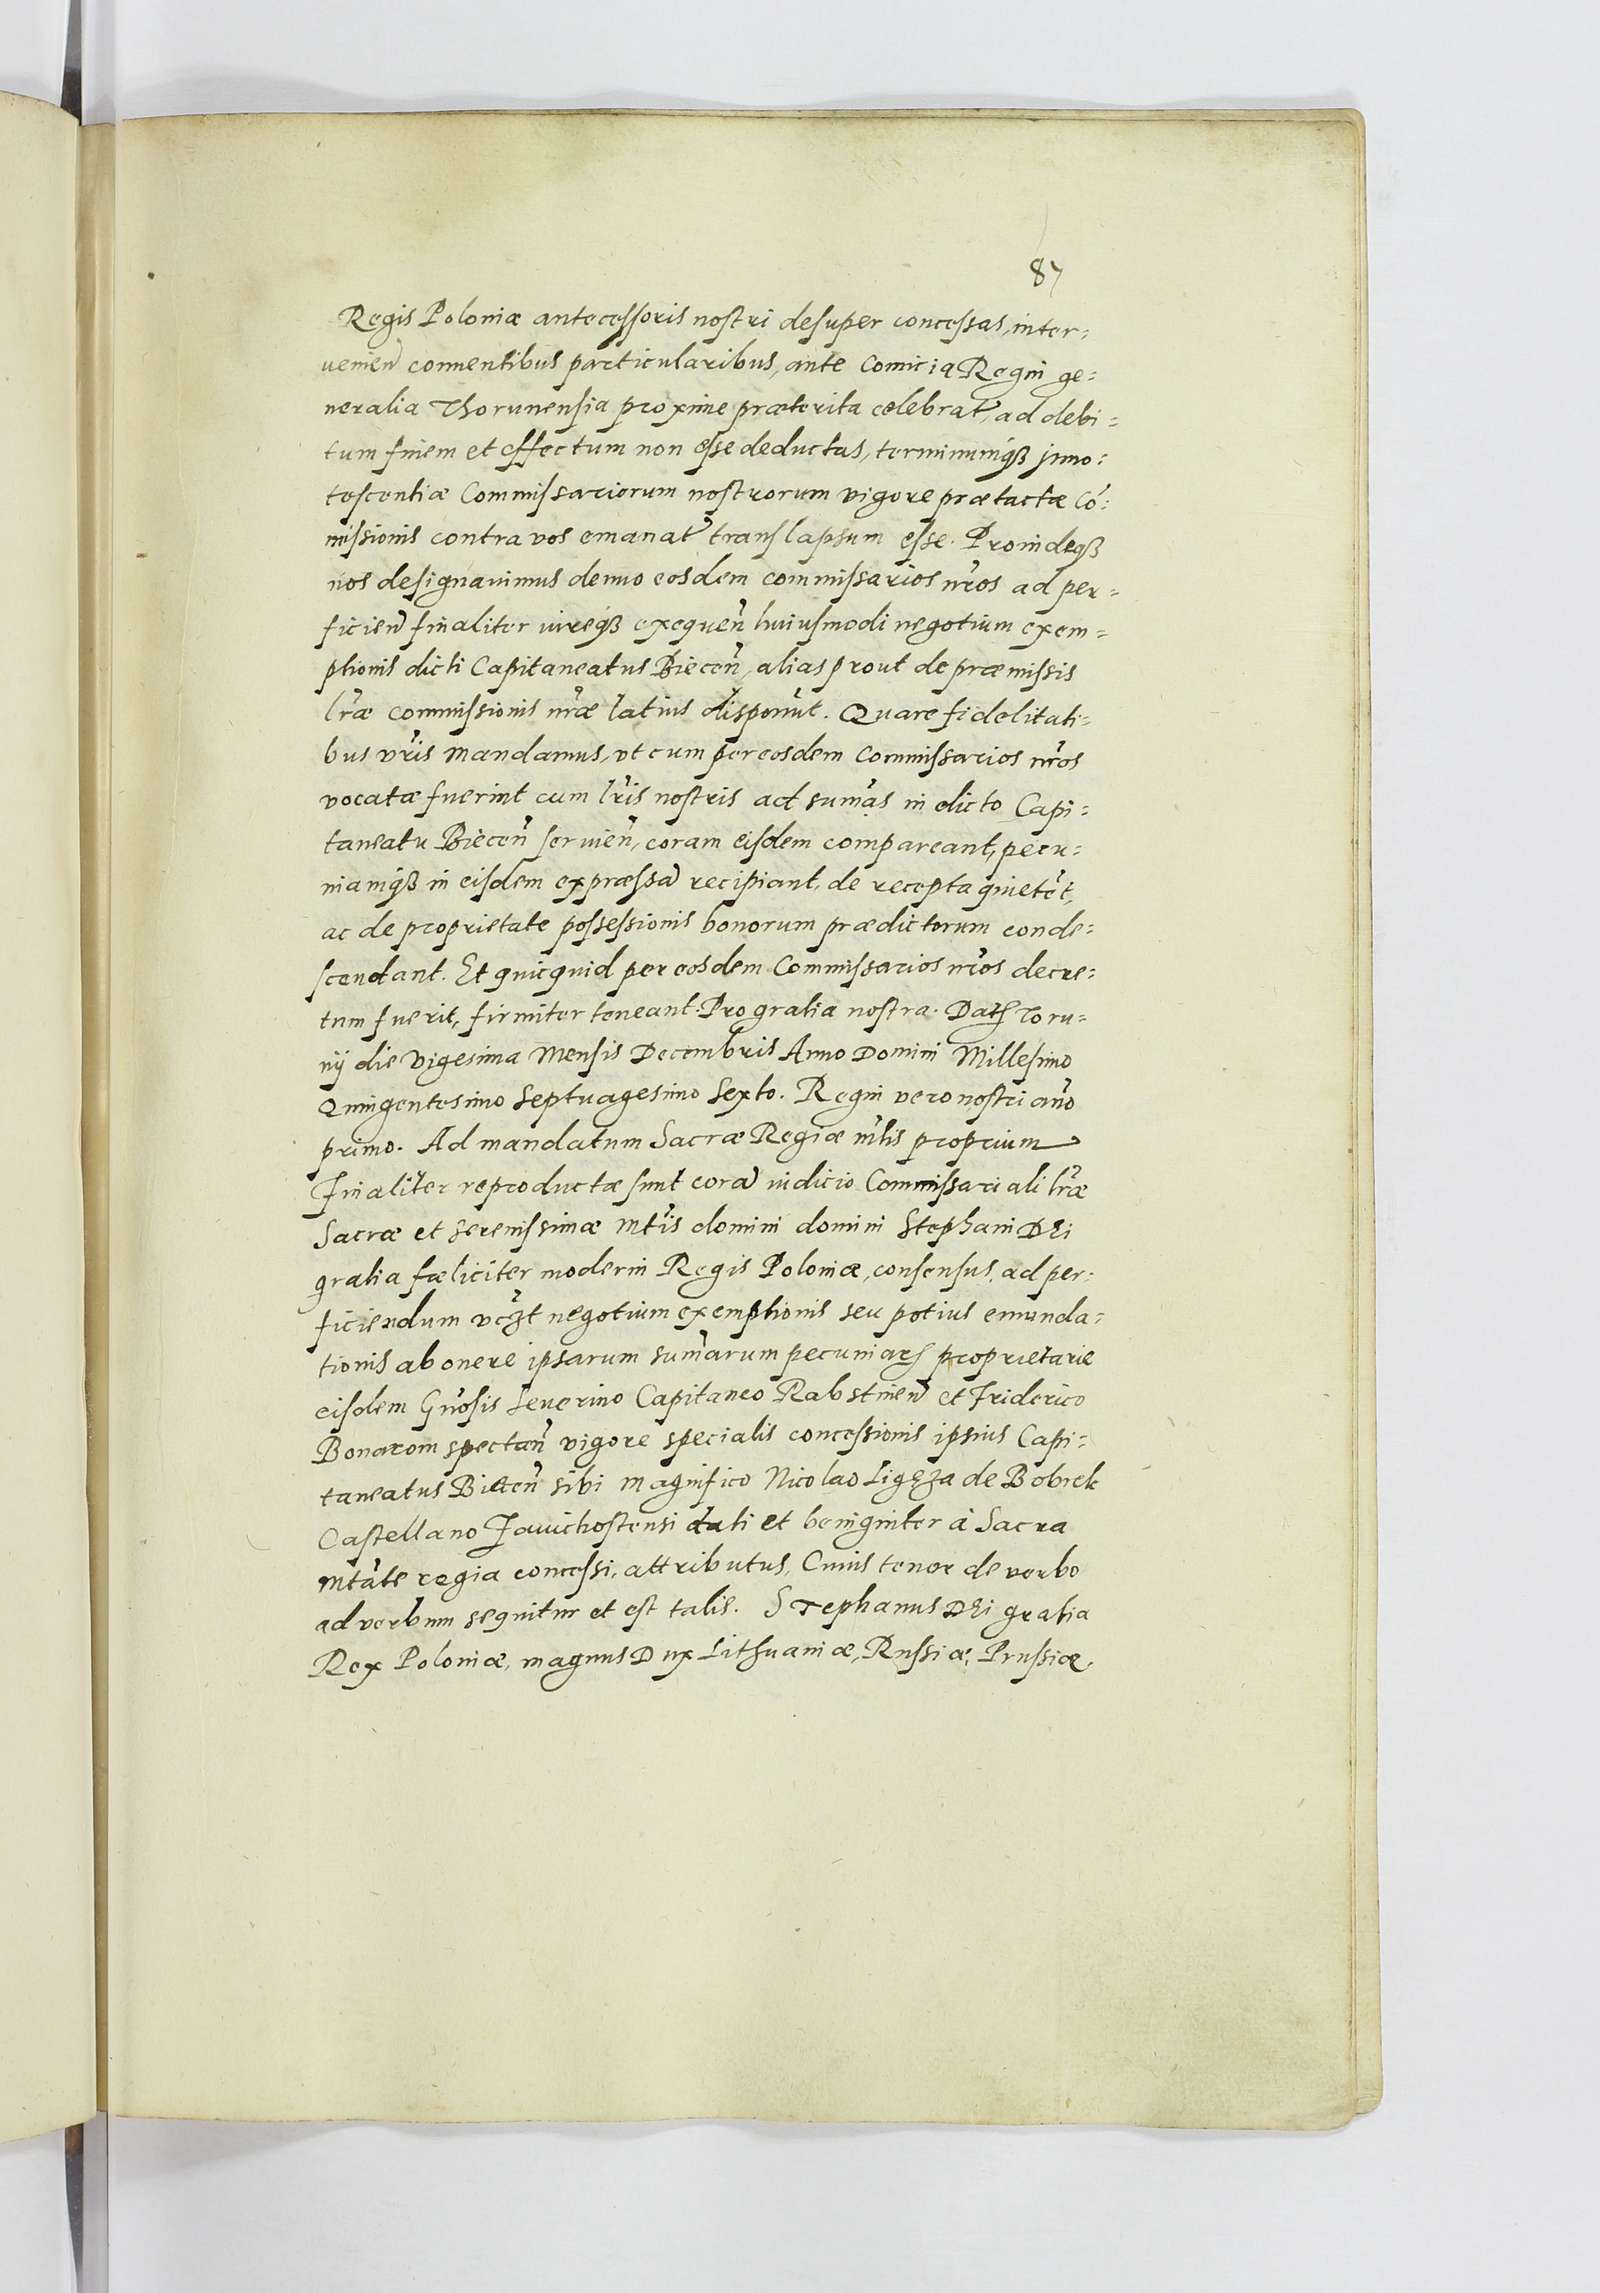 87
Regis Poloniæ antecessoris nostri desuper concessas, inter=
uenien̄ conuentibus particularibus, ante Comicia Regni ge=
neralia Thorunensia proxime præterita celebrat̄, ad debi=
tum finem et effectum non esse deductas, terminumq́ʒ jnno=
tescentiæ Commissariorum nostrorum vigore prætactæ Cō=
missionis contra vos emanat̄ translapsum esse. Proindeqʒ
nos designauimus denuo eosdem commissarios nr̄os ad per=
ficien̄ finaliter iureqʒ exequen̄ huiusmodi negotium exem=
ptionis dicti Capitaneatus Biecen̄, alias prout de præmissis
lr̄æ commissionis nr̄æ latius disponūt. Quare fidelitati=
bus vr̄is mandamus, vt cum per eosdem Commissarios nr̄os
vocatæ fuerint cum lr̄is nostris ad sum̄as in dicto Capi=
taneatu Biecen̄ seruien̄, coram eisdem compareant, pecu=
niamq́ʒ in eisdem expræssā recipiant, de recepta quietēt,
ac de proprietate possessionis bonorum prædictorum conde=
scendant. Et quicquid per eosdem Commissarios nr̄os decre=
tum fuerit, firmiter teneant. Pro gratia nostra. Datʒ Toru=
nij die vigesima Mensis Decembris Anno Domini Millesimo
Quingentesimo Septuagesimo Sexto. Regni vero nostri an̄o
primo. Ad mandatum Sacræ Regiæ m̄tis proprium
Finaliter reproductæ sunt corā iudicio Commissariali lr̄æ
Sacræ et Serenissimæ Mt̄is domini domini Stephani DEi
gratia fæliciter moderni Regis Poloniæ, consensus, ad per=
ficiendum vcʒt negotium exemptionis seu potius emunda=
tionis ab onere ipsarum sum̄arum pecuniarʒ proprietarie
eisdem Gn̄osis Seuerino Capitaneo Rabstinen̄ et Friderico
Bonarom spectan̄ vigore specialis concessionis ipsius Capi=
taneatus Biecen̄ sibi Magnifico Nicolao Ligęza de Bobrek
Castellano Zawichostensi dati et beniginter à Sacra
Mtāte regia concessi, attributus, Cuius tenor de verbo
ad verbum sequitur et est talis. STephanus DEi gratia
Rex Poloniæ, magnus Dux Lithuaniæ, Russiæ, Prussiæ,